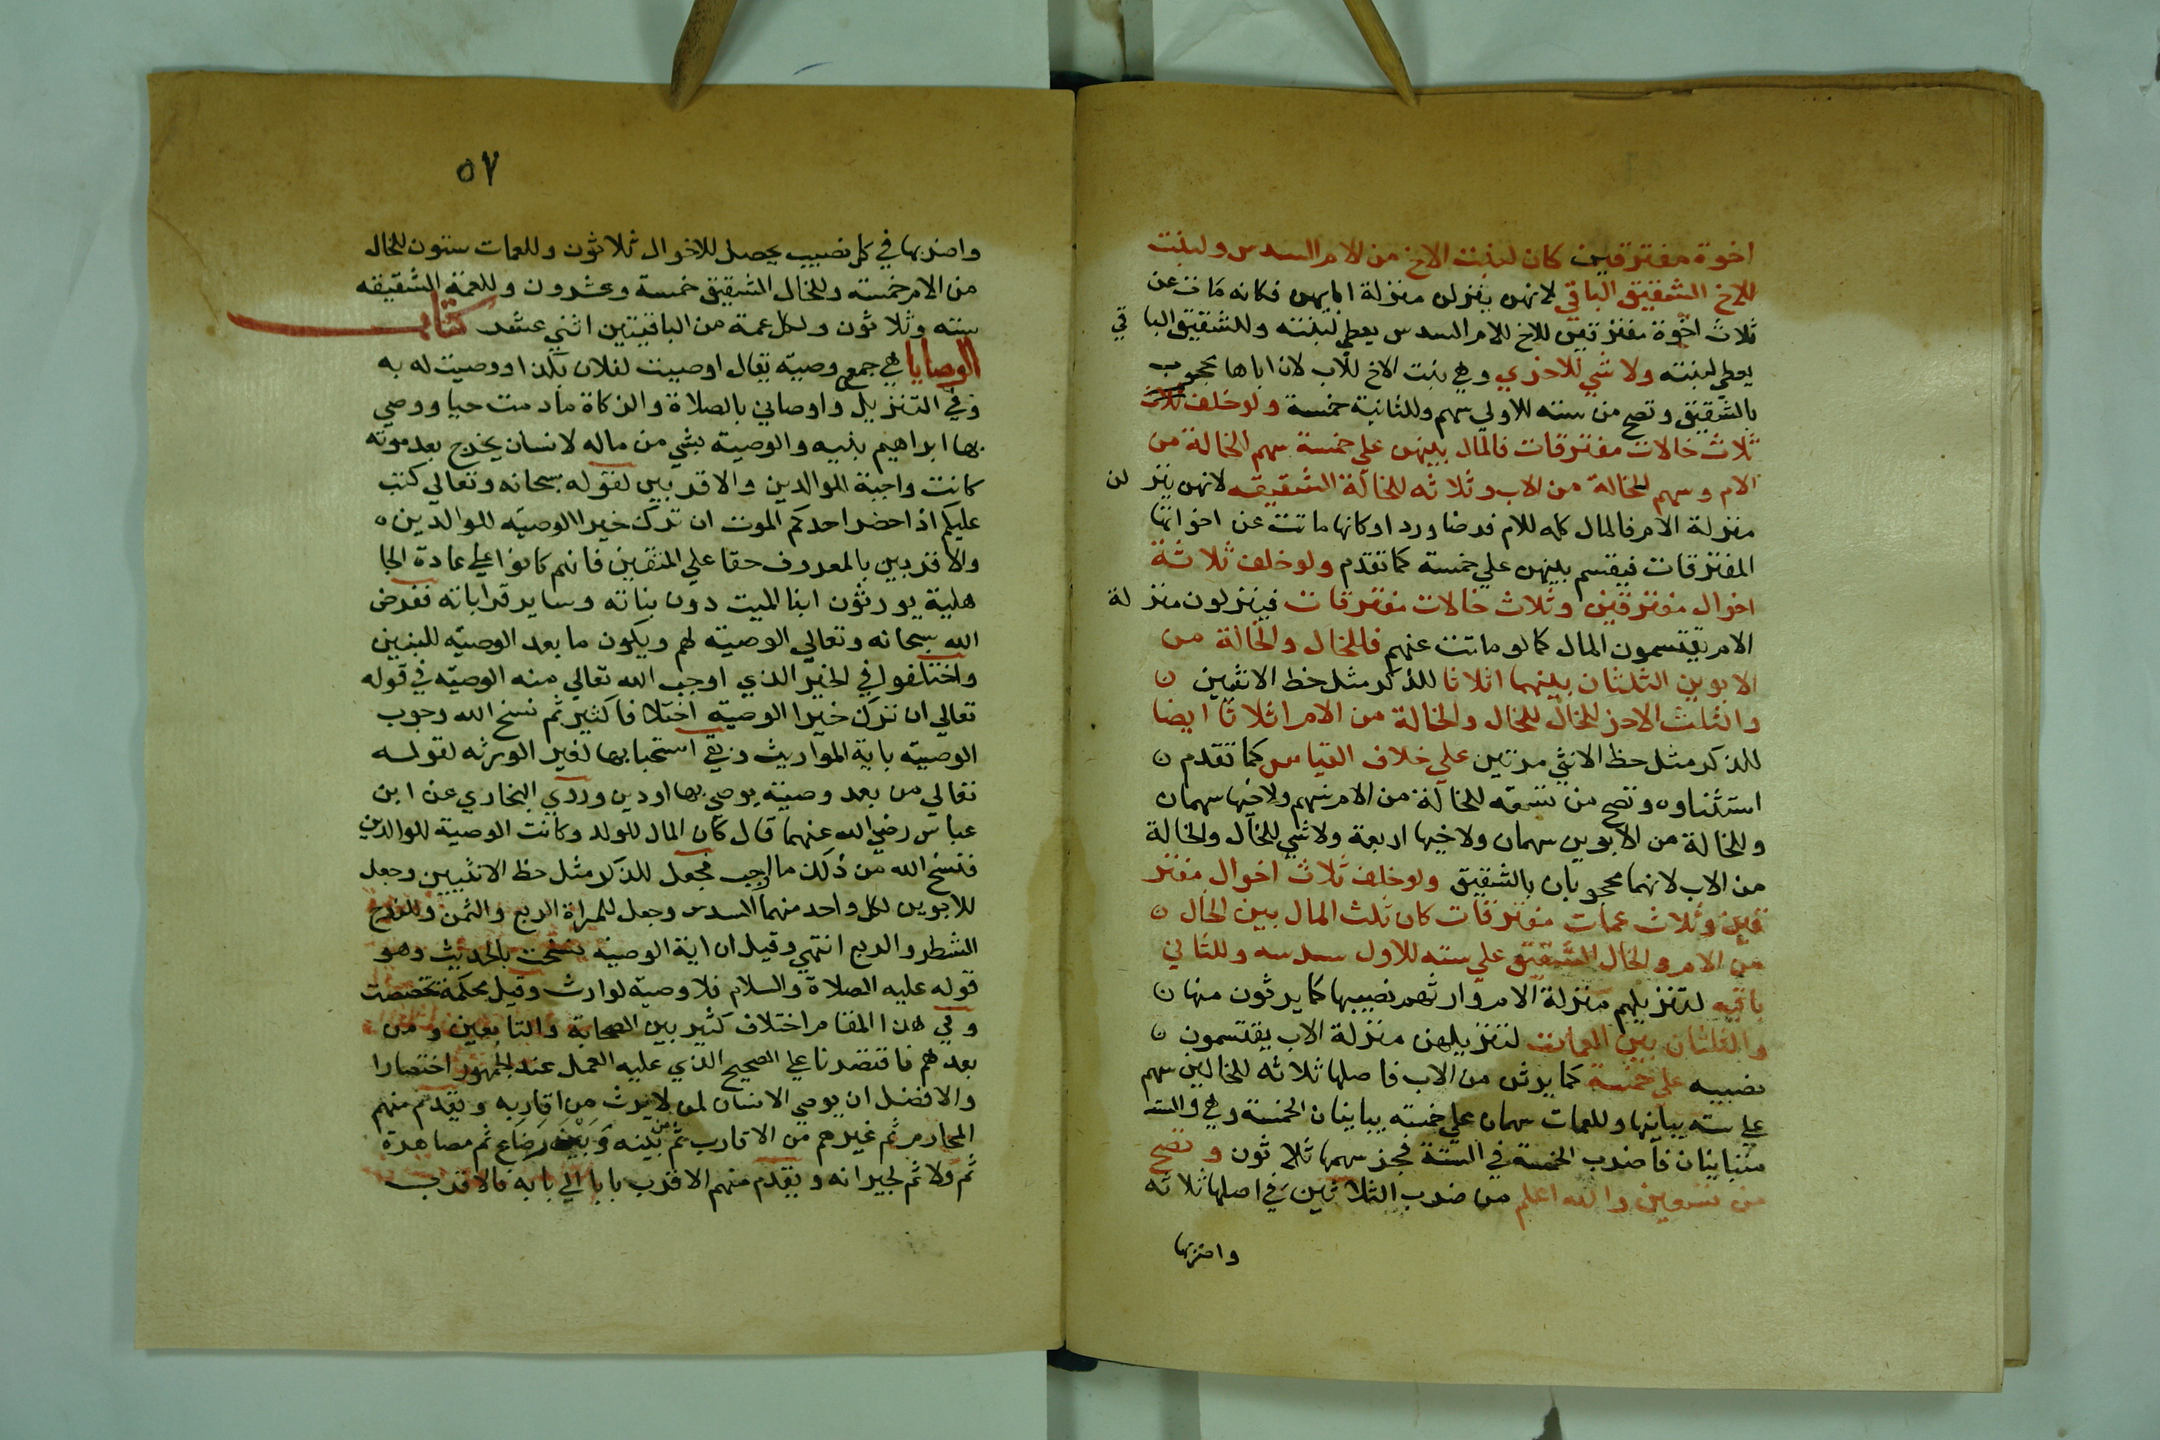 اخوة مفترقين كان لبنت الاخ من الام السدس ولبنت
للاخ الشقيق الباقي لانهن ينزلن منزلة ابايهن فكانه مات عن
ثلاث اخوة مفترقين للاخ للام السدس يعطي لبنته وللشقيق الباقي
يعطي لبنته ولا شي للاخري وهي بنت الاخ للاب لان اباها محجوب
بالشقيق وتصح من سته للاولي سهم وللثانية خمسة ولو خلف ثلاث
ثلاث خالات مفترقات فالمال بينهن علي خمسة سهم الخالة من
الام وسهم للخالة من الاب وثلاثه للخالة الشقيقه لانهن ينزلن
منزلة الام فالمال كله للام فرضا وردا وكانها ماتت عن اخواتها
المفترقات فيقسم بينهن علي خمسة كما تقدم ولو خلف ثلاثة
اخوال مفترقين وثلاث خالات مفترقات فينزلون منزلة
الام يقتسمون المال كما لو ماتت عنهم فللخال والخالة من
الابوين الثلثان بينهما اثلاثا للذكر مثل حظ الانثيين ن
والثلث الاخر للخال للخال والخالة من الام اثلاثا ايضا
للذكر مثل حظ الانثي مرتين علي خلاف القياس كما تقدم ن
استثناوه وتصح من تسعه للخالة من الام سهم ولاخيها سهمان
وللخالة من الابوين سهمان ولاخيها اربعة ولا شي للخال والخالة
من الاب لانهما محجوبان بالشقيق ولو خلف ثلاث اخوال مفتر
قين وثلاث عمات مفترقات كان ثلث المال بين الخال ن
من الام والخال الشقيق علي سته للاول سدسه وللثاني
باقيه لتنزيلهم منزلة الام وارثهم نصيبها كما يرثون منها ن
والثلثان بين العمات لتنزيلهن منزلة الاب يقتسمون ن
نصيبه علي خمسة كما يرثن من الاب فاصلها ثلاثه للخالين سهم
علي سته يباينها وللعمات سهمان علي خمسه يباينان الخمسة وهي والسته
متباينان فاضرب الخمسة في الستة فجز سهمها ثلاثون وتصح
من تسعين والله اعلم من ضرب الثلاثين في اصلها ثلاثه
واضربها
٥٧
واضربها في كل نصيب يحصل للاخوال ثلاثون وللعمات ستون للخال
من الام خمسه وللخال الشقيق خمسة وعشرون وللعمة الشقيقه
سته وثلاثون ولكل عمة من الباقيتين اثني عشر كتاب
الوصايا هي جمع وصيه يقال اوصيت لفلان بكذا ووصيت له به
وفي التنزيل واوصاني بالصلاة والزكاة مادمت حيا ووصي
بها ابراهيم بنيه والوصية بشي من ماله لانسان يخرج بعد موته
كانت واجبة للوالدين والاقربين لقوله سبحانه وتعالي كتب
عليكم اذا حضر احدكم الموت ان ترك خيرا الوصيه للوالدين ه
والاقربين بالمعروف حقا علي المتقين فانهم كانوا علي عادة الجا
هلية يورثون ابنا الميت دون بناته وساير قراباته ففرض
الله سبحانه وتعالي الوصية لهم ويكون ما بعد الوصيه للبنين
واختلفوا في الخير الذي اوجب الله تعالي منه الوصيه في قوله
تعالي ان ترك خيرا الوصيه اختلافا كثيرا ثم نسخ الله وجوب
الوصيه باية المواريث وبقي استحبابها لغير الورثه لقوله
تعالي من بعد وصية يوصي بها او دين وروي البخاري عن ابن
عباس رضي الله عنهما قال كان المال للولد وكانت الوصية للوالدين
فنسخ الله من ذلك ما احب فجعل للذكر مثل حظ الانثيين وجعل
للابوين لكل واحد منهما السدس وجعل للمراة الربع والثمن وللزوج
الشطر والربع انتهي وقيل ان اية الوصية نسخت بالحديث وهو
قوله عليه الصلاة والسلام فلا وصية لوارث وقيل محكمة تخصصت
وفي هذا المقام اختلاف كثير بين الصحابة والتابعين ومن
بعدهم فاقتصرنا علي الصحيح الذي عليه العمل عند الجمهور اختصارا
والافضل ان يوصي الانسان لمن لا يرث من اقاربه ويقدم منهم
المحارم ثم غيرهم من الاقارب ثم من بينه وبينه رضاع ثم مصاهرة
ثم ولا ثم لجيرانه ويقدم منهم الاقرب بابا الي بابه فالاقرب